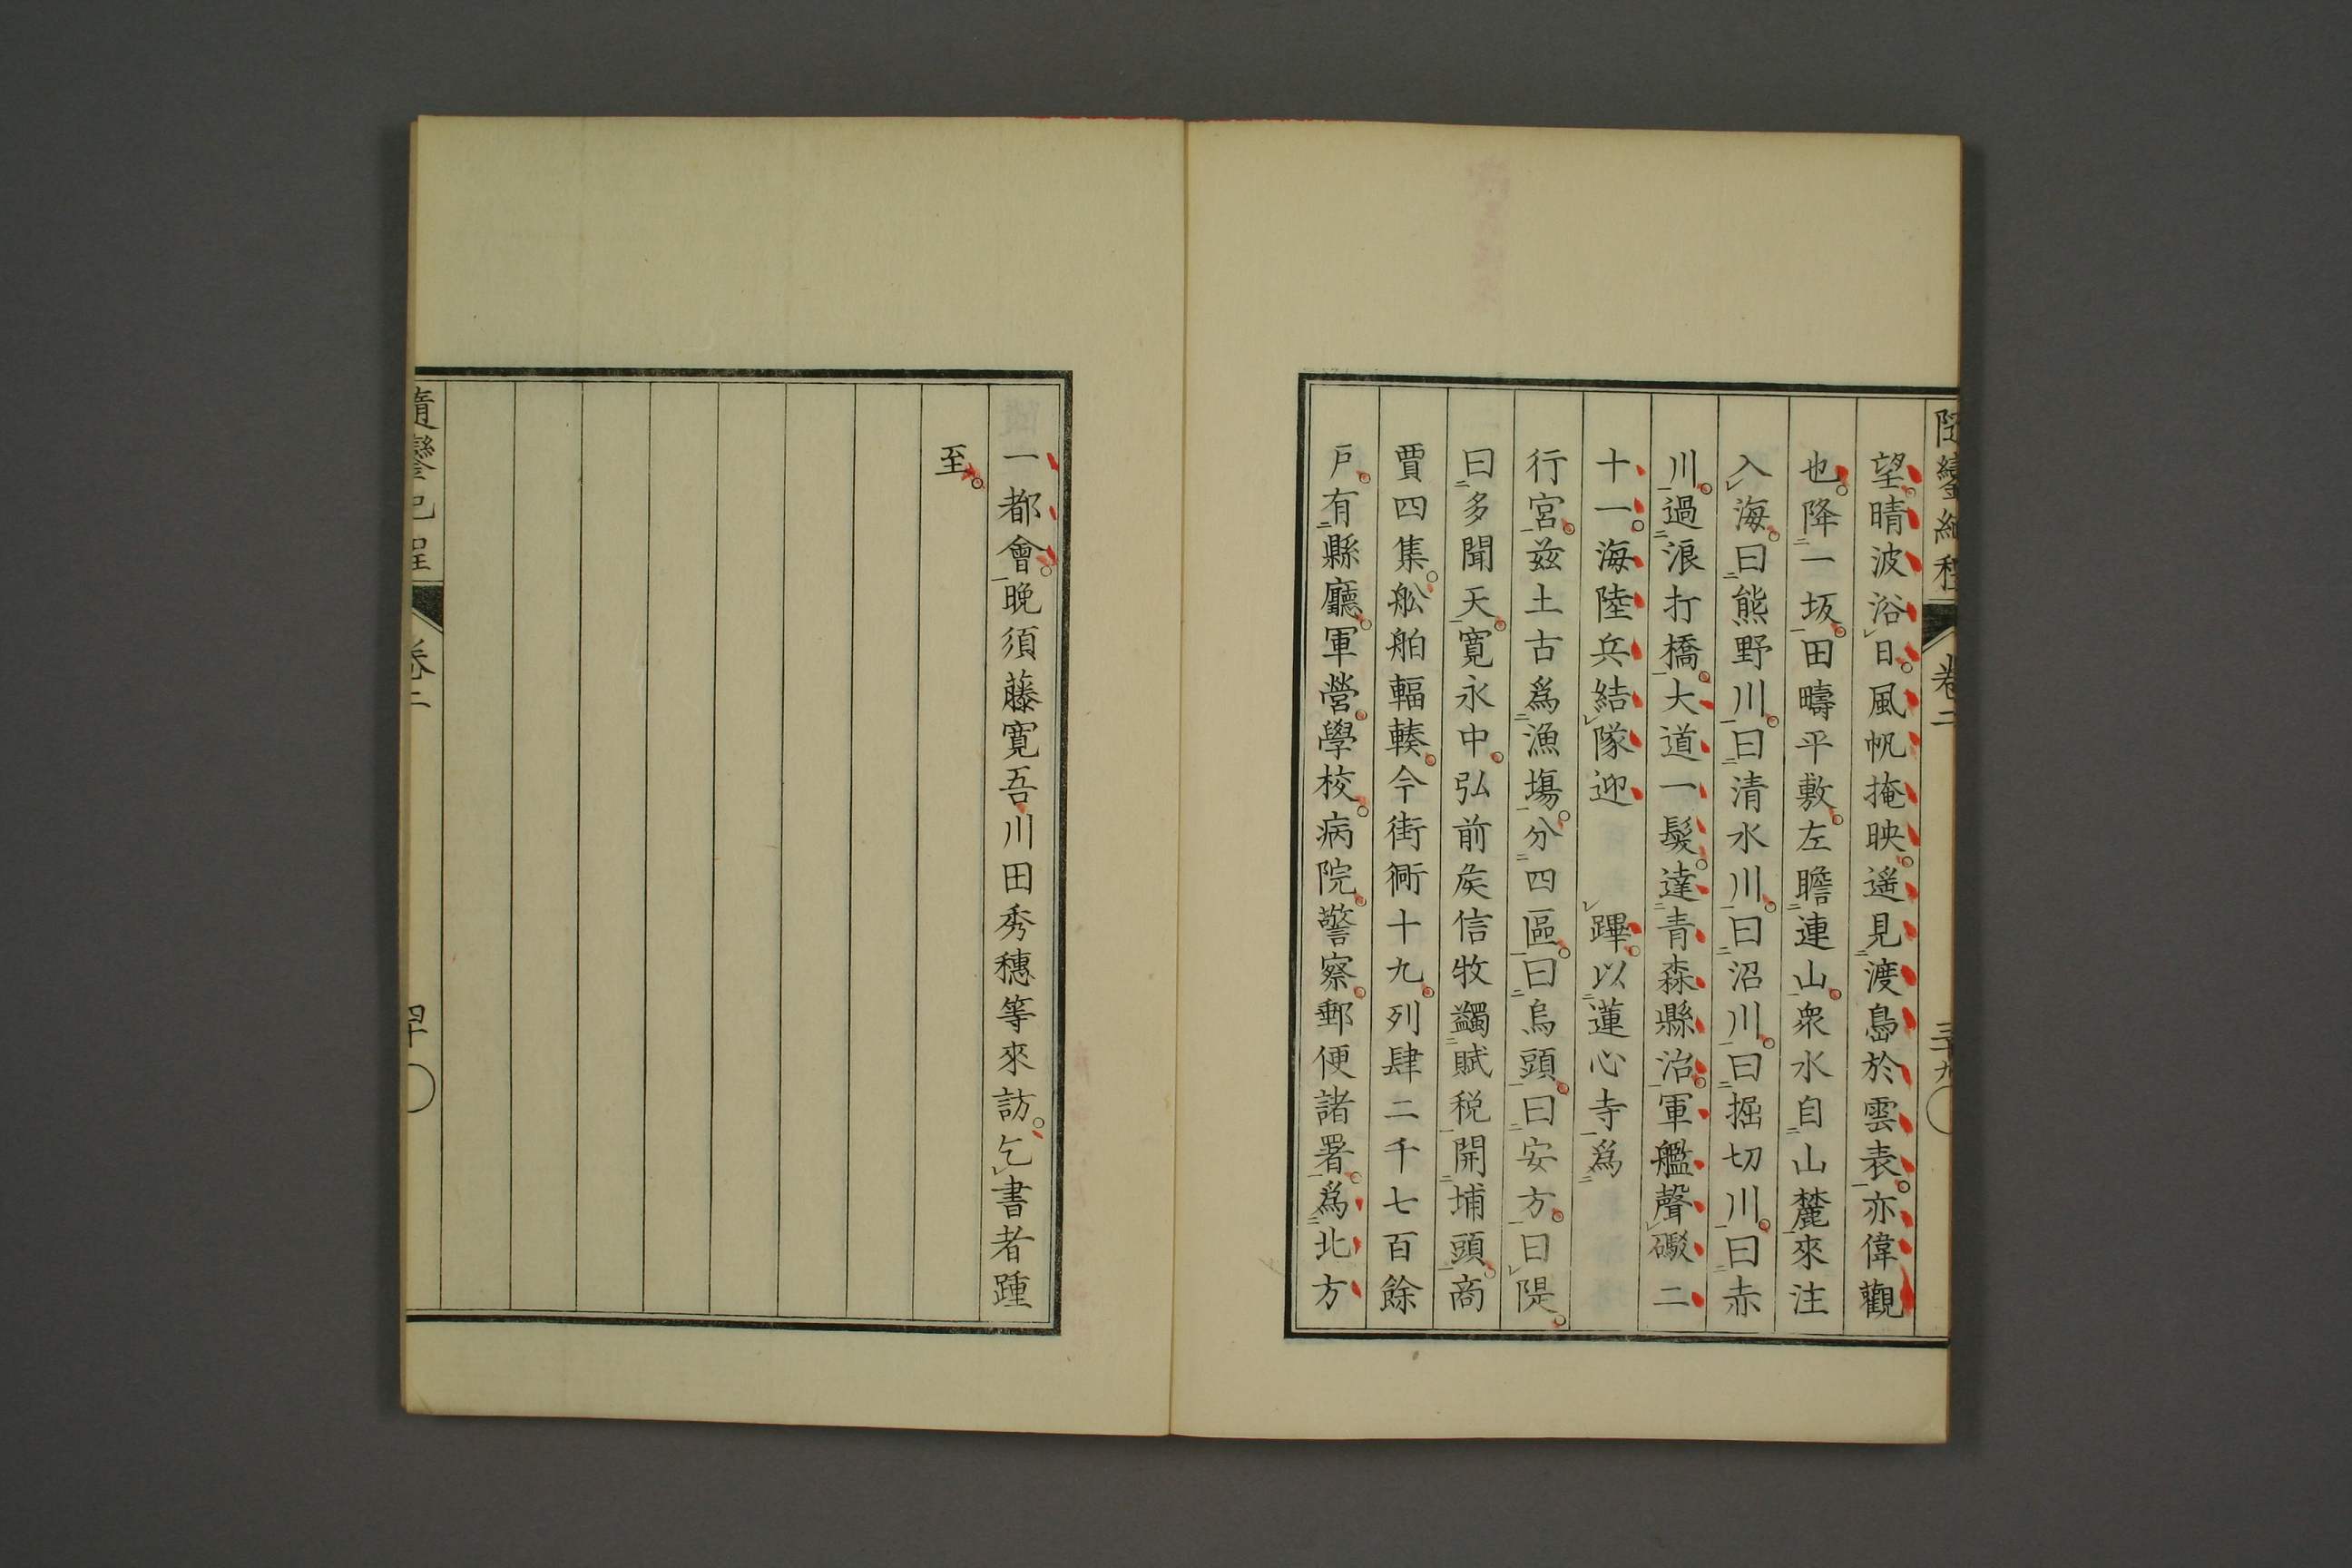 隨鑾紀程 卷二 三十九
望晴波浴日風帆掩映遥見渡島於雲表亦偉觀
也降一坂田疇平敷左瞻連山衆水自山麓來注
入海曰熊野川曰清水川曰沼川曰掘切川曰赤
川過浪打橋大道一髮達青森縣治軍艦聲礮二
十一海陸兵結隊迎 蹕以蓮心寺爲
行宮兹土古爲漁塲分四區曰烏頭曰安方曰隄
曰多聞天寛永中弘前矦信牧蠲賦税開埔頭商
賈四集舩舶輻輳今街衕十九列肆二千七百餘
戶有縣廳軍營學校病院警察郵便諸署爲北方
一都會晚須藤寛吾川田秀穗等來訪乞書者踵
至
隨鑾紀程 卷二 四十